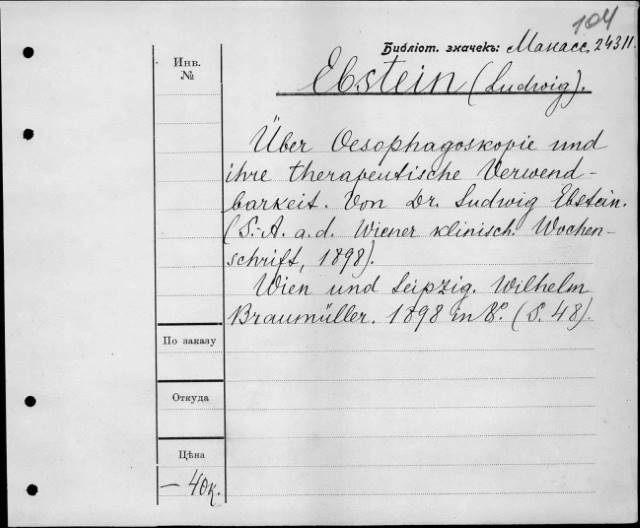 104
Библіот. значекъ: Манасс. 24311.
Инв.
№
Ebstein (Ludwig).
Über Oesophagoskopie und
ihre therapeutische Verwend-
barkeit. Von Dr. Ludwig Ebstein.
(S.-A. a. d. Wiener klinisch. Wochen-
schrift, 1898).
Wien und Leipzig. Wilhelm
Braumüller. 1898 in 8°. (S. 48).
По заказу
Откуда
Цѣна
— 40к.